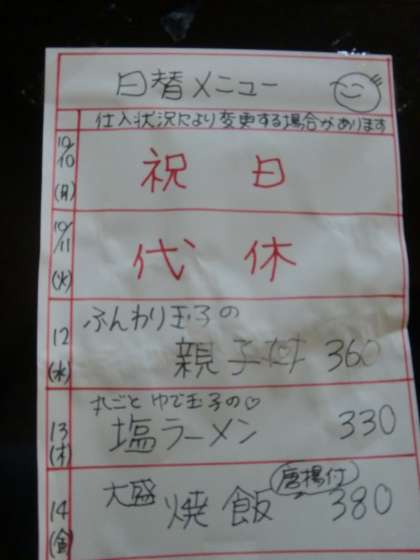 日替メニュー
仕入状況により変更する場合があります
10/10
(月)
祝日
10/11
(火)
代休
12
(水)
ふんわり玉子の
親子丼 360
13
(木)
丸ごとゆで玉子の♡
塩ラーメン 330
14
(金)
大盛 焼飯 唐揚付 380